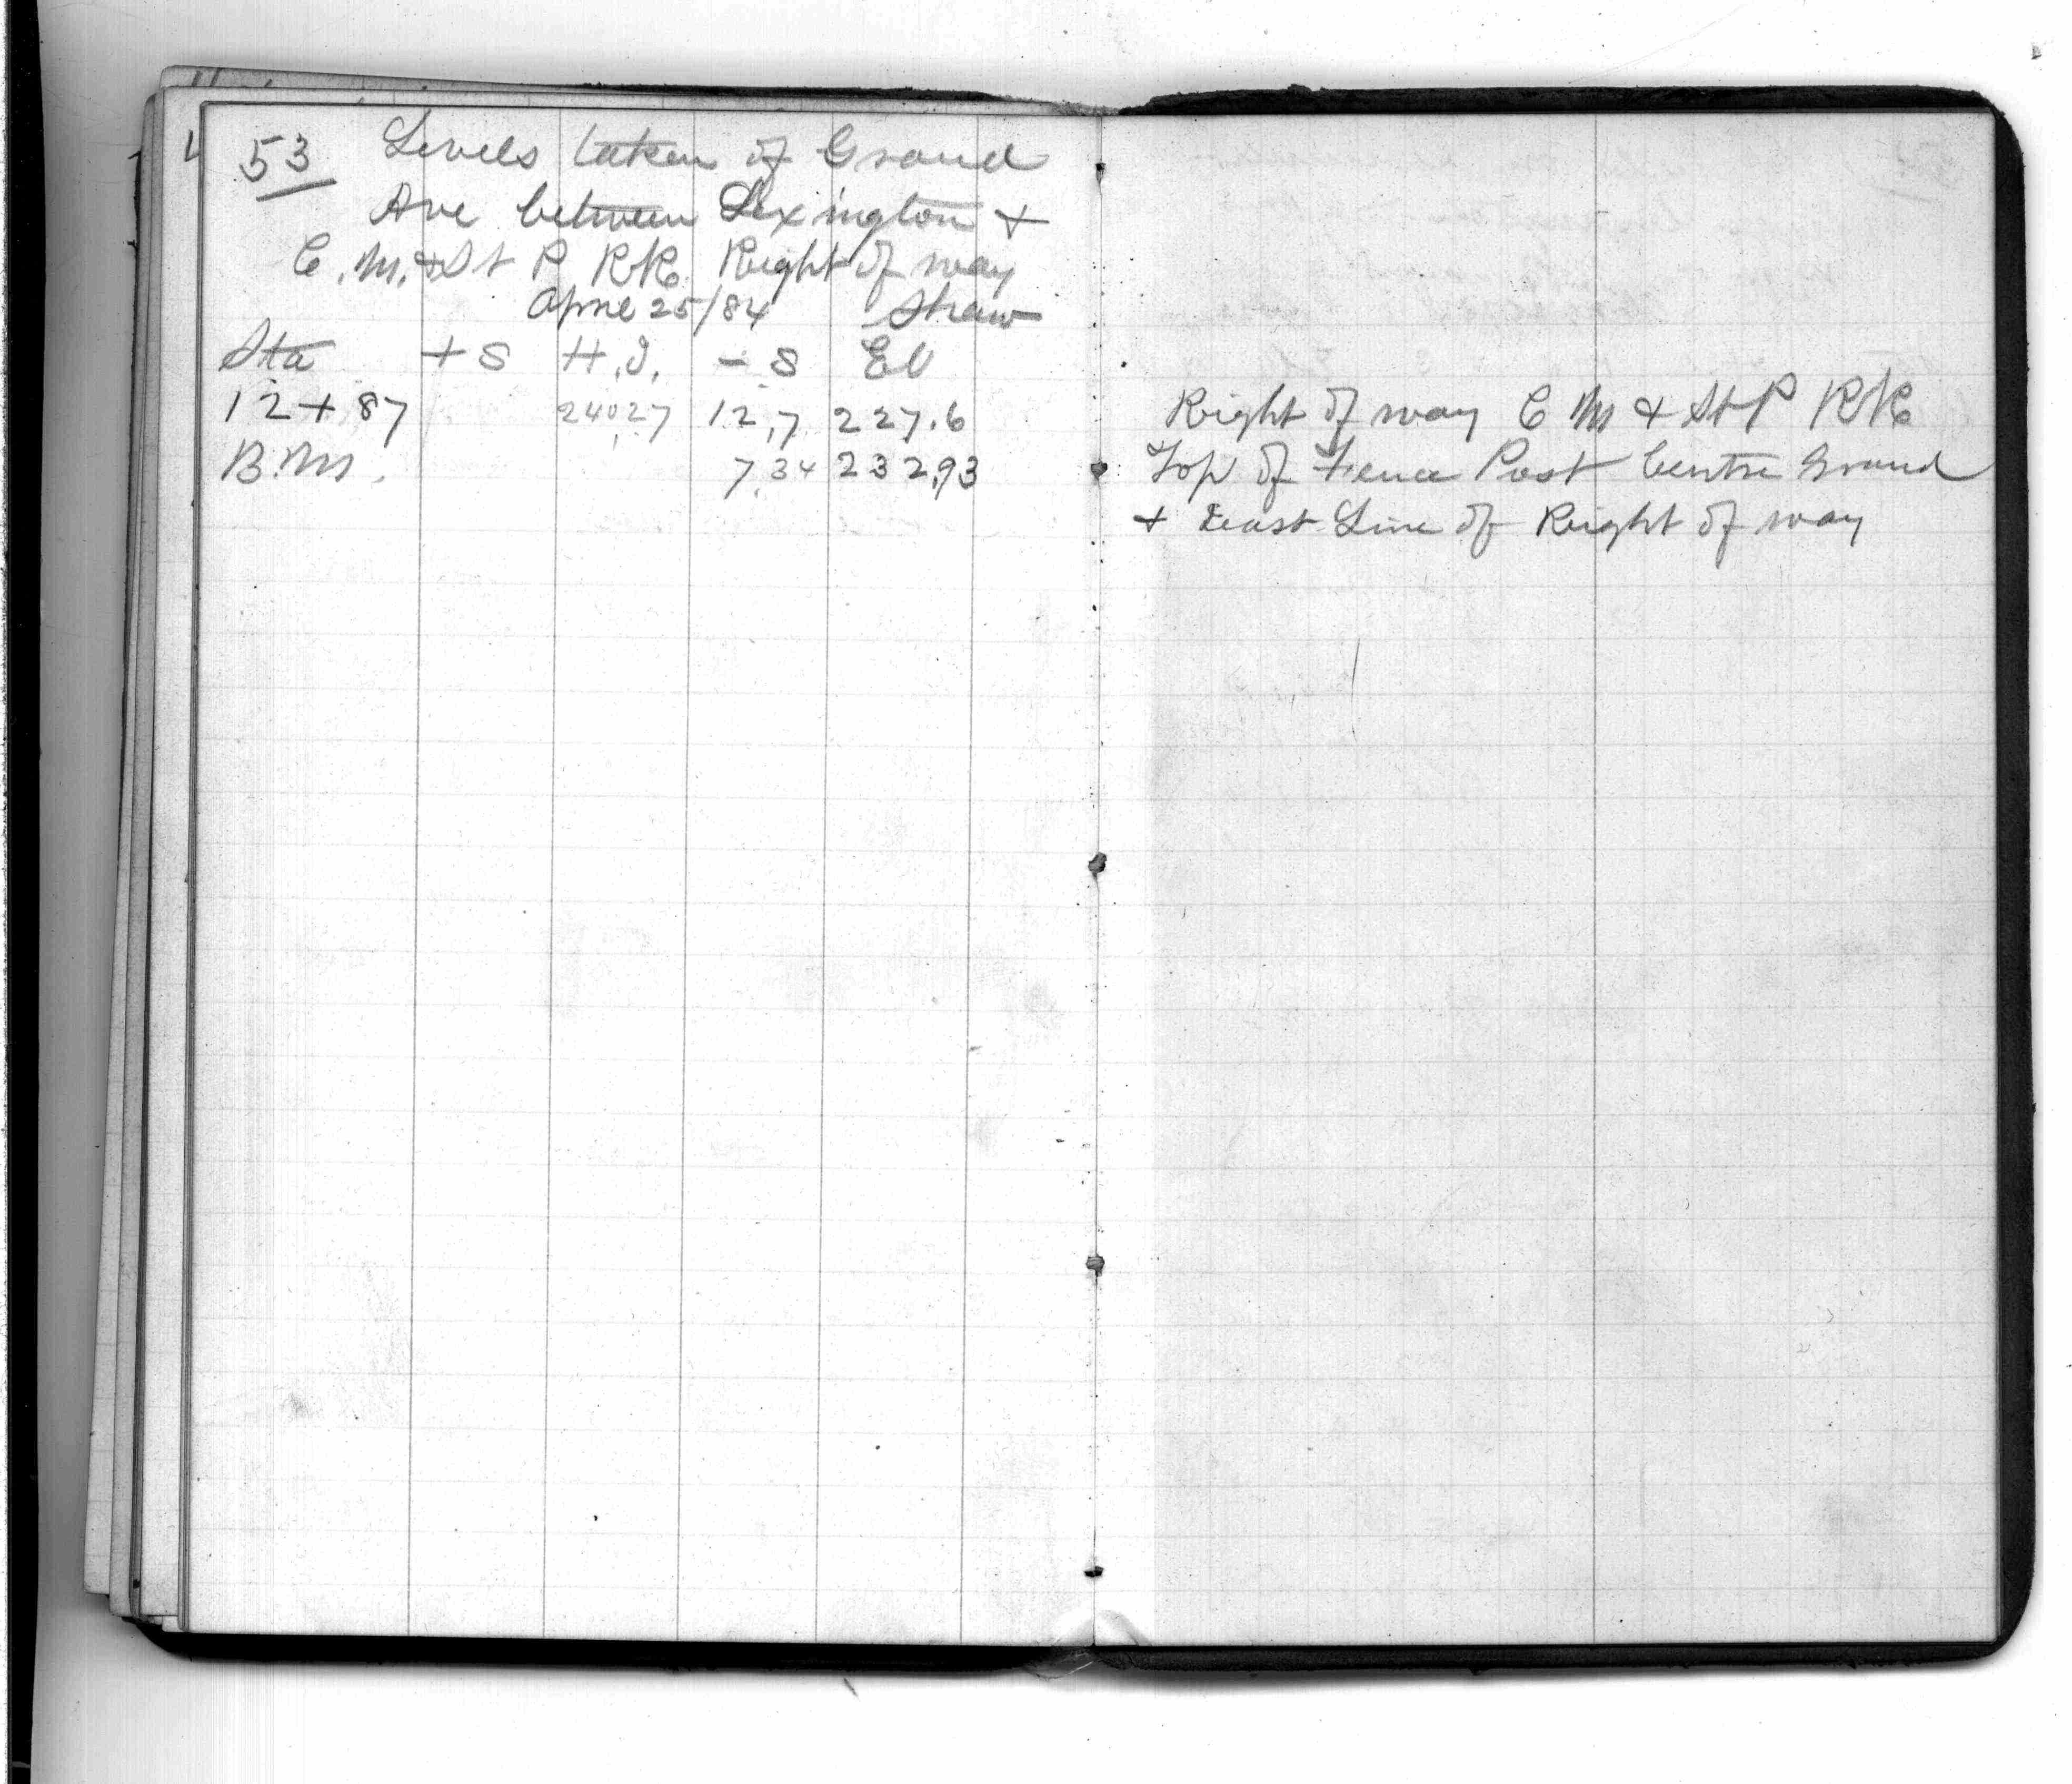 53 Levels taken of Grand
Ave between Lexington +
C.M. + St P RR. Right of way
April 25/84 Shaw
Sta + S H.I. - S El
12+87 240.27 12.7 227.6 Right of way C M + St P RR
B.M. 7.34 232.93 Top of Fence Post Centre Grand
+ East Line of Right of way